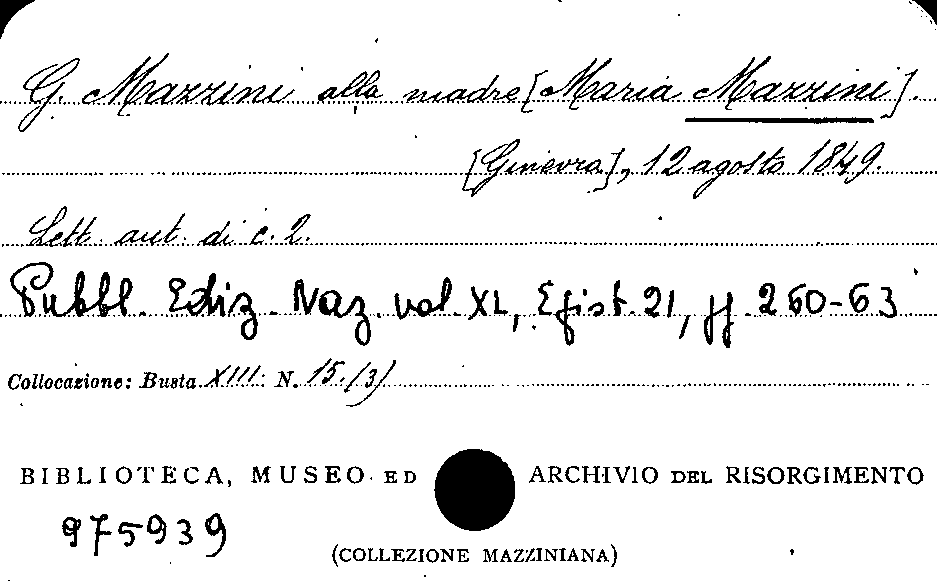 G. Mazzini alla madre [Maria Mazzini].
[Ginevra], 12 agosto 1849.
Lett. aut. di c. 2.
Pubbl. Ediz. Naz. vol. XL, Epist. 21, pp. 260-63
Collocazione: Busta XIII N. 15. (3)
BIBLIOTECA, MUSEO ED ARCHIVIO DEL RISORGIMENTO
975939
(COLLEZIONE MAZZINIANA)